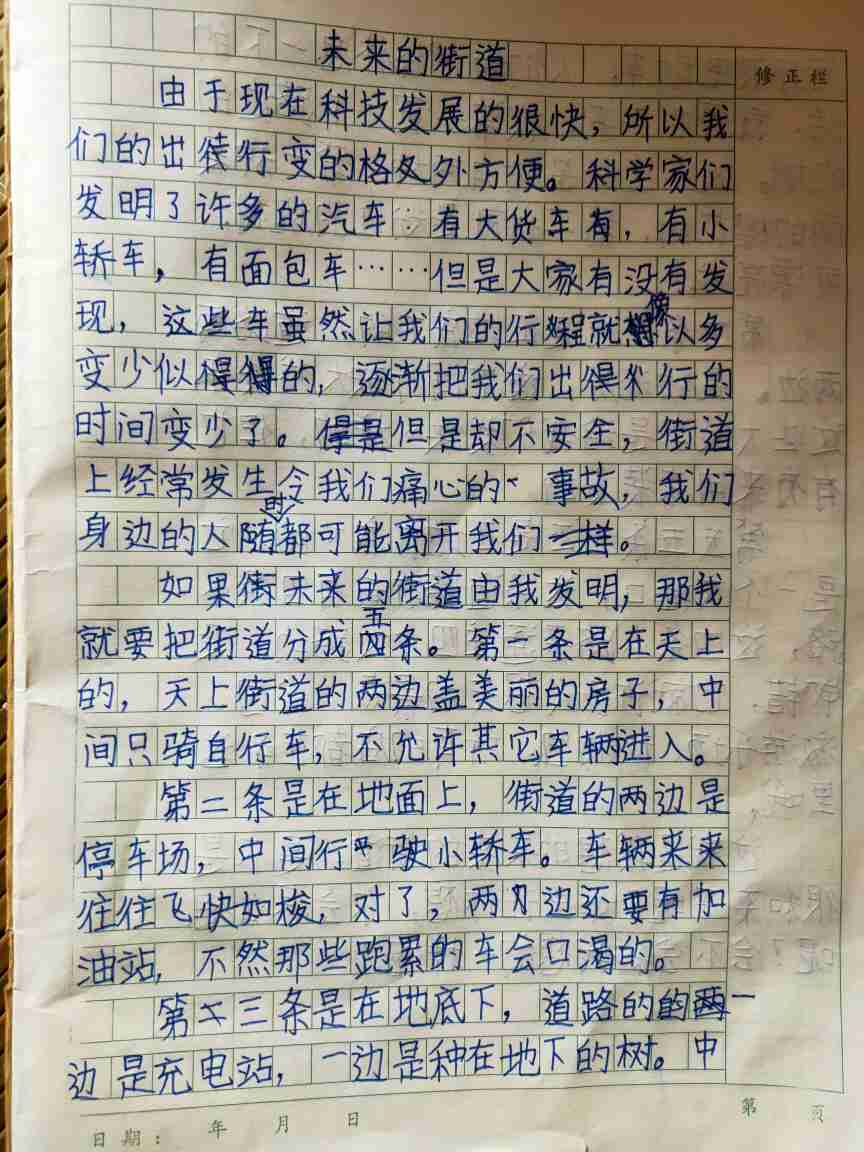 未来的街道
修正栏
由于现在科技发展的很快，所以我
们的出行变的格外方便。科学家们
发明了许多的汽车：有大货车，有小
轿车，有面包车……但是大家有没有发
现，这些车虽然让我们的行程就像以多
变少似得的，逐渐把我们出行的
时间变少了。但是却不安全，街道
上经常发生令我们痛心的事故，我们
身边的人随时都可能离开我们。
如果未来的街道由我发明，那我
就要把街道分成五条。第一条是在天上
的，天上街道的两边盖美丽的房子，中
间只骑自行车，不允许其它车辆进入。
第二条是在地面上，街道的两边是
停车场，中间行驶小轿车。车辆来来
往往飞快如梭，对了，两边还要有加
油站，不然那些跑累的车会口渴的。
第三条是在地底下，道路的一
边是充电站，一边是种在地下的树。中
日期： 年 月 日
第 页